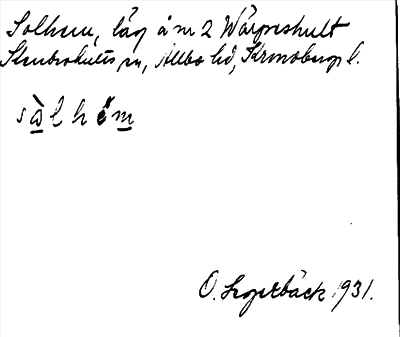 Solhem, låg å nr 2 Wärpeshult
Stenbrohults sn, Allbo hd, Kronobergs l.
sàlhem
O. 1931.